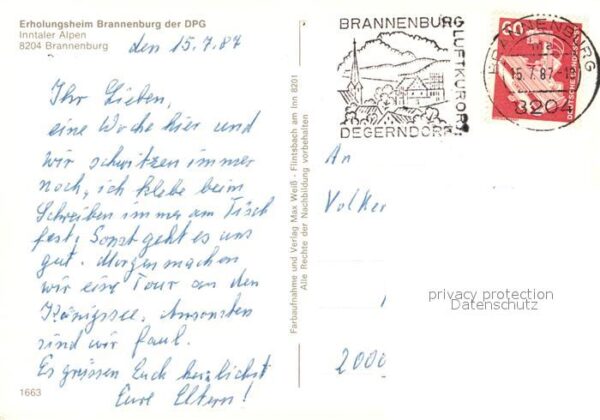 Erholungsheim Brannenburg der DPG
Inntaler Alpen
8204 Brannenburg
den 15.7.87
Ihr Lieben,
eine Woche hier und
wir schwitzen immer
noch, ich klebe beim
Schreiben immer am Tisch
fest. Sonst geht es uns
gut. Morgen machen
wir eine Tour an den
Königssee. Ansonsten
sind wir faul.
Es grüssen Euch herzlichst
Eure Eltern!
1663
Farbaufnahme und Verlag Max Weiß - Flintsbach am Inn 8201
Alle Rechte der Nachbildung vorbehalten
BRANNENBURG
LUFTKURORT
DEGERNDORF
50
BRANNENBURG
15.7.87-18
8204
An
Volker
2000
privacy protection
Datenschutz